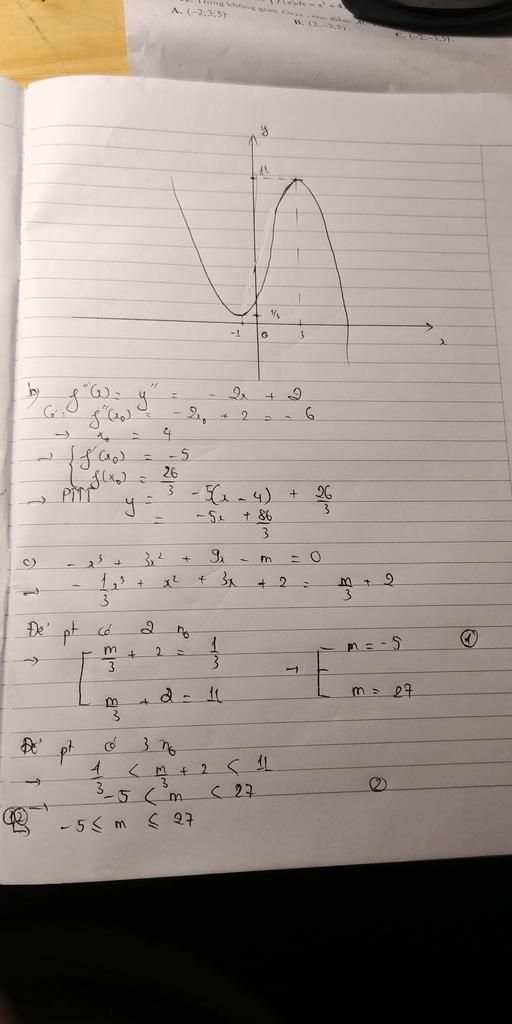 A. (−2;3;5).
B. (2;−3;5).
C. (−2;−3;5).
y
11
1/3
-1 0 3
x
b) f''(x) = y'' = - 2x + 2
Có: f''(x₀) = -2x₀ + 2 = - 6
→ x₀ = 4
→ { f'(x₀) = -5
f(x₀) = 26/3
→ PTTT y = -5(x - 4) + 26/3
= -5x + 86/3
c) - x³ + 3x² + 9x - m = 0
→ - 1/3 x³ + x² + 3x + 2 = m/3 + 2
Để pt có 2 n₀
→ [ m/3 + 2 = 1/3 → [ m = -5 ①
m/3 + 2 = 11 m = 27
Để pt có 3 n₀
→ 1/3 < m/3 + 2 < 11
→ -5 < m < 27 ②
-5 ≤ m ≤ 27